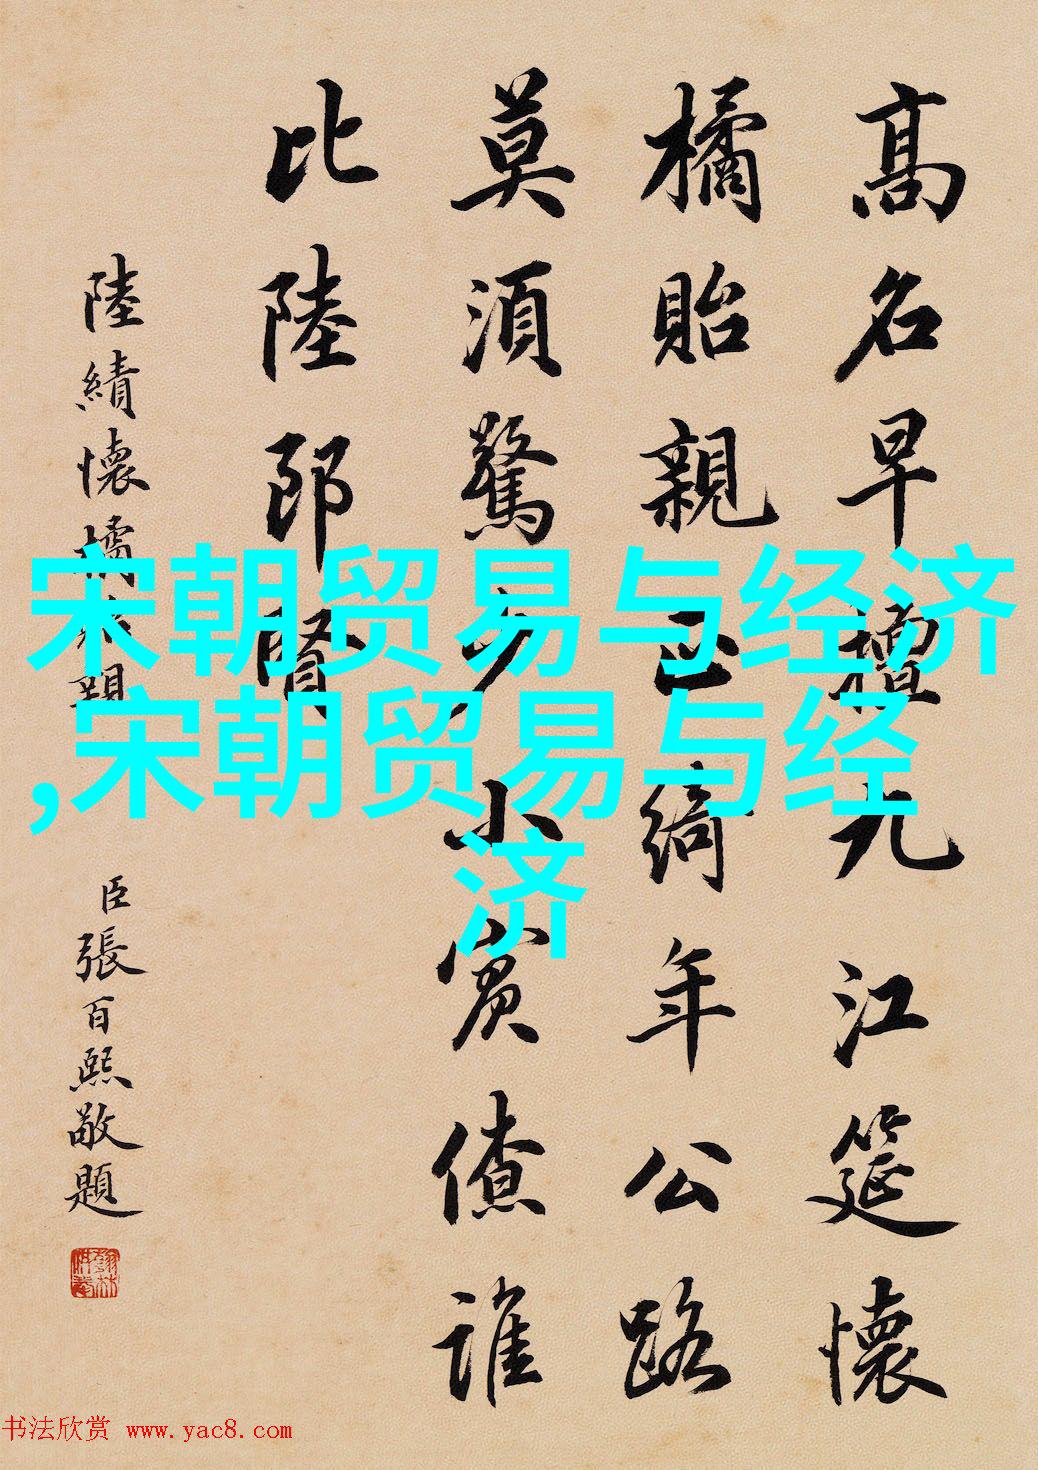 高名早擅九江筵懷
橘貽親正綺年公路
莫須驚少小賓僚誰
比陸郎賢
陸績懷橘
臣張百熙敬題
宋朝贸易与经济
,宋朝贸易与经
济
书法欣赏 www.yac8.com